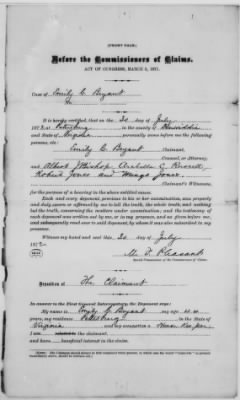 [FRONT PAGE.]
Before the Commissioners of Claims.
ACT OF CONGRESS, MARCH 3, 1871.
Case of Emily C. Bryant
It is hereby certified, that on the 20 day of July
1872, at Petersburg in the county of Dinwiddie
State of Virginia personally came before me the following
persons, viz:
Emily C. Bryant Claimant,
Counsel, or Attorney,
and Albert J Bishop,
Robert Jones and Jones
Claimant's Witnesses,
for the purpose of a hearing in the above entitled cause.
Each and every deponent, previous to his or her examination, was properly
and duly sworn or affirmed by me to tell the truth, the whole truth, and nothing
but the truth, concerning the matters under examination; and the testimony of
each deponent was written out by me, or in my presence, and as given before me, and
subsequently read over to said deponent, by whom it was also subscribed in my
presence.
Witness my hand and seal this 20 day of July
1872.
M. F. Pleasants
Special Commissioner of the Commissioners of Claims.
Deposition of The Claimant
In answer to the First General Interrogatory, the Deponent says:
My name is Emily C. Bryant my age 44
years, my residence Petersburg in the State of
Virginia and my occupation a House Keeper
I am the claimant,
and have beneficial interest in the claim.